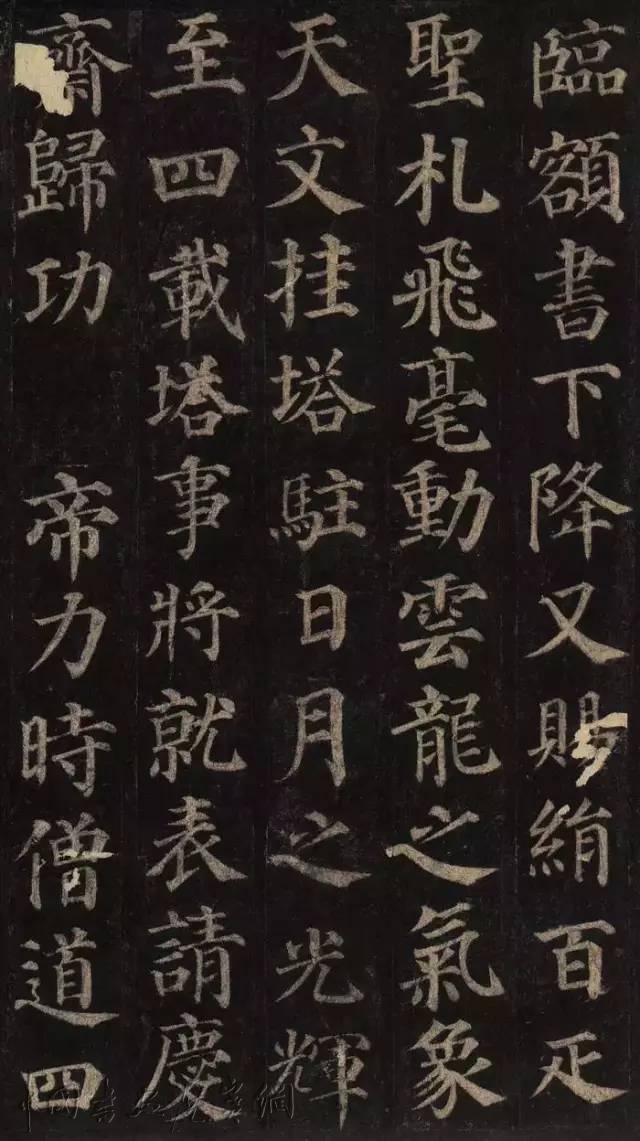 臨額書下降又賜絹百疋
聖札飛毫動雲龍之氣象
天文挂塔駐日月之光輝
至四載塔事將就表請慶
齋歸功　帝力時僧道四